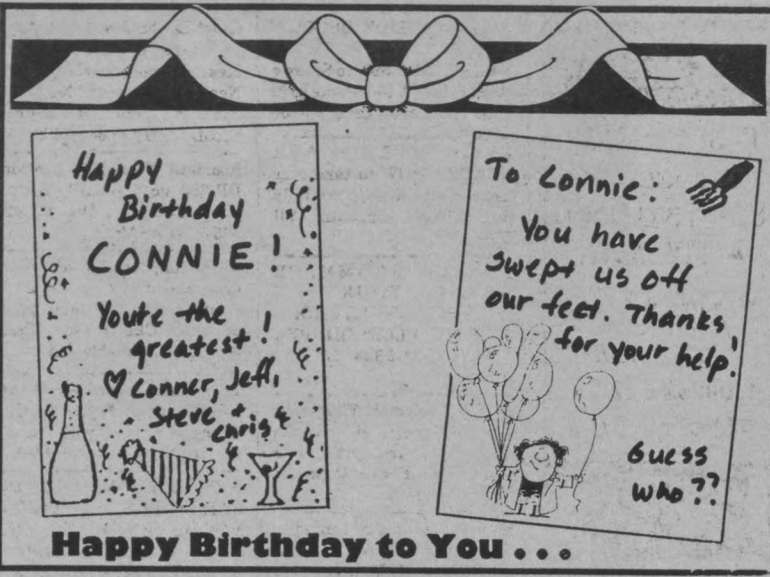 Happy
Birthday
CONNIE!
You're the
greatest!
♡ Conner, Jeff,
Steve +
Chris
To Connie:
You have
swept us off
our feet. Thanks
for your help!
Guess
who??
Happy Birthday to You . . .